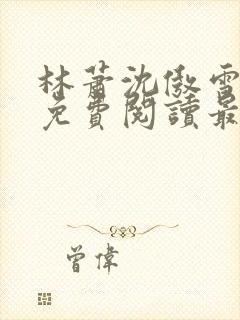 林蕭沈傲雪
免費閱讀最
曾偉